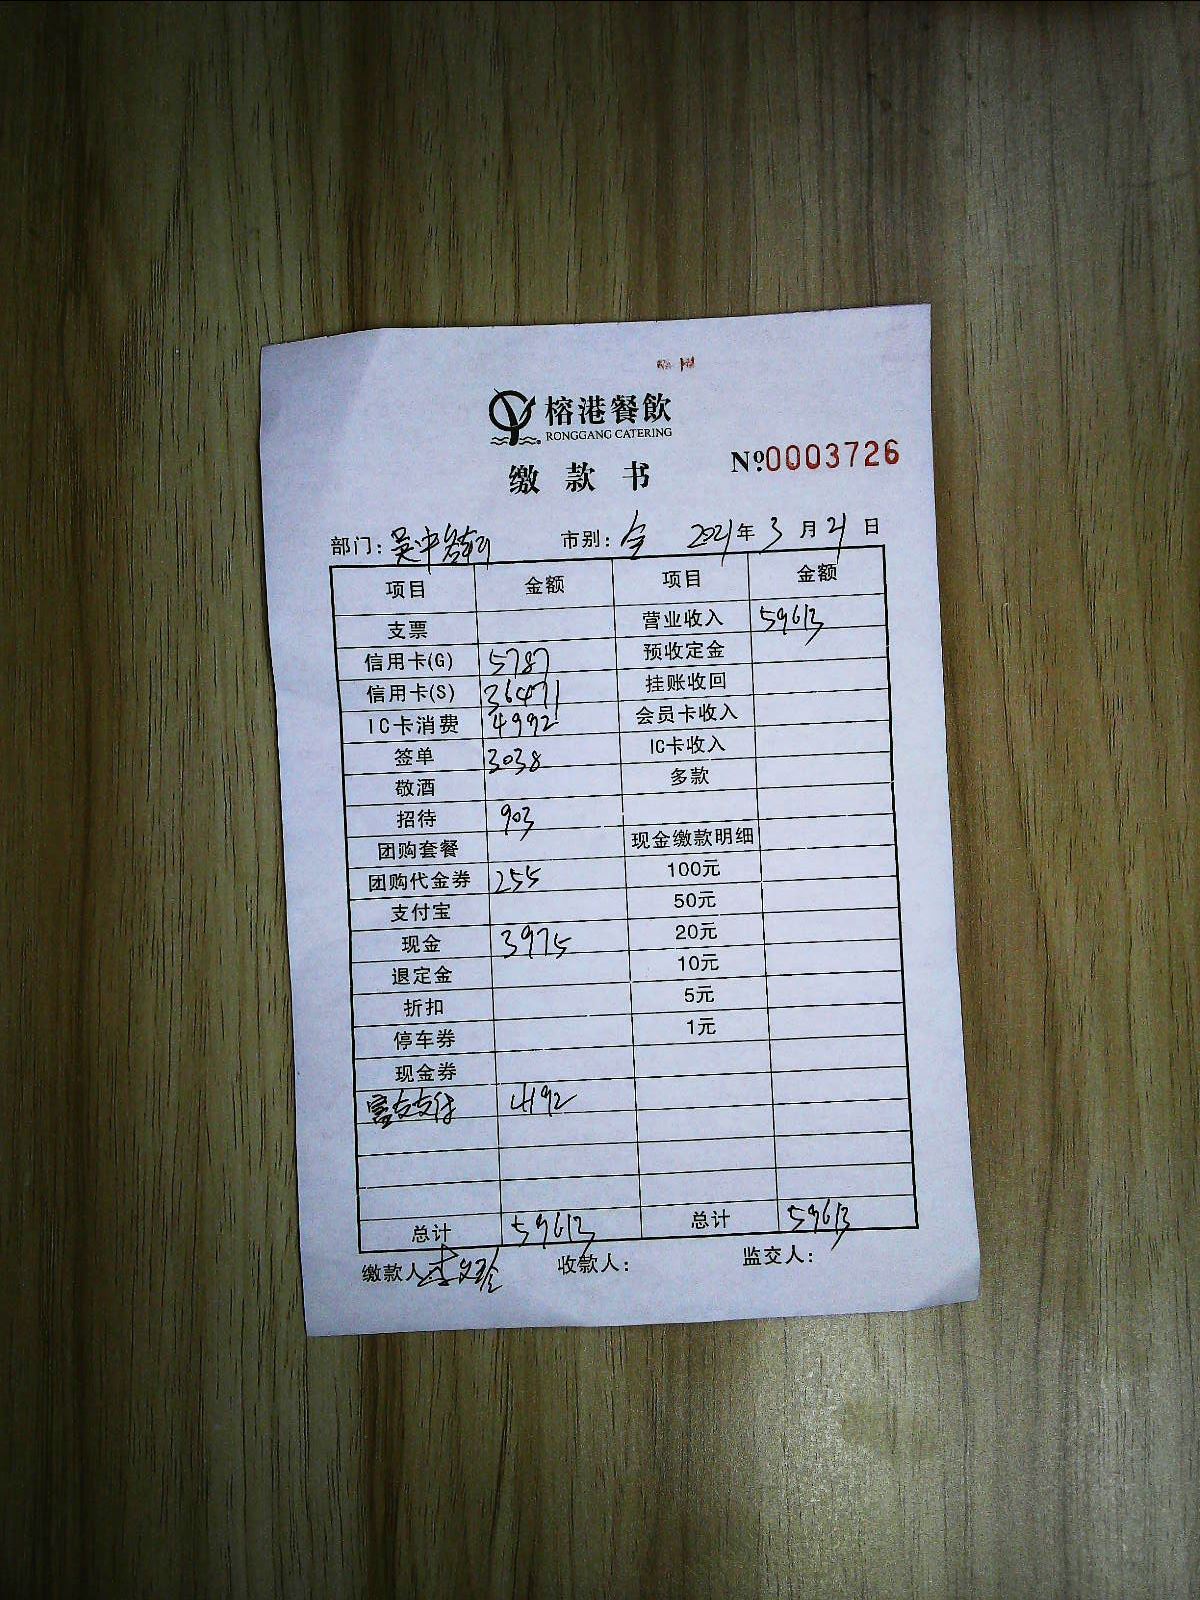 榕港餐飲
RONGGANG CATERING
缴款书
Nº:0003726
部门: 吴中 市别: 全 2021年3月21日
项目 金额 项目 金额
支票 营业收入 59613
信用卡(G) 5787 预收定金
信用卡(S) 36471 挂账收回
IC卡消费 4992 会员卡收入
签单 3038 IC卡收入
敬酒 多款
招待 903
团购套餐 现金缴款明细
团购代金券 255 100元
支付宝 50元
现金 3975 20元
退定金 10元
折扣 5元
停车券 1元
现金券
支付 4192
总计 59613 总计 59613
缴款人 李 收款人: 监交人: